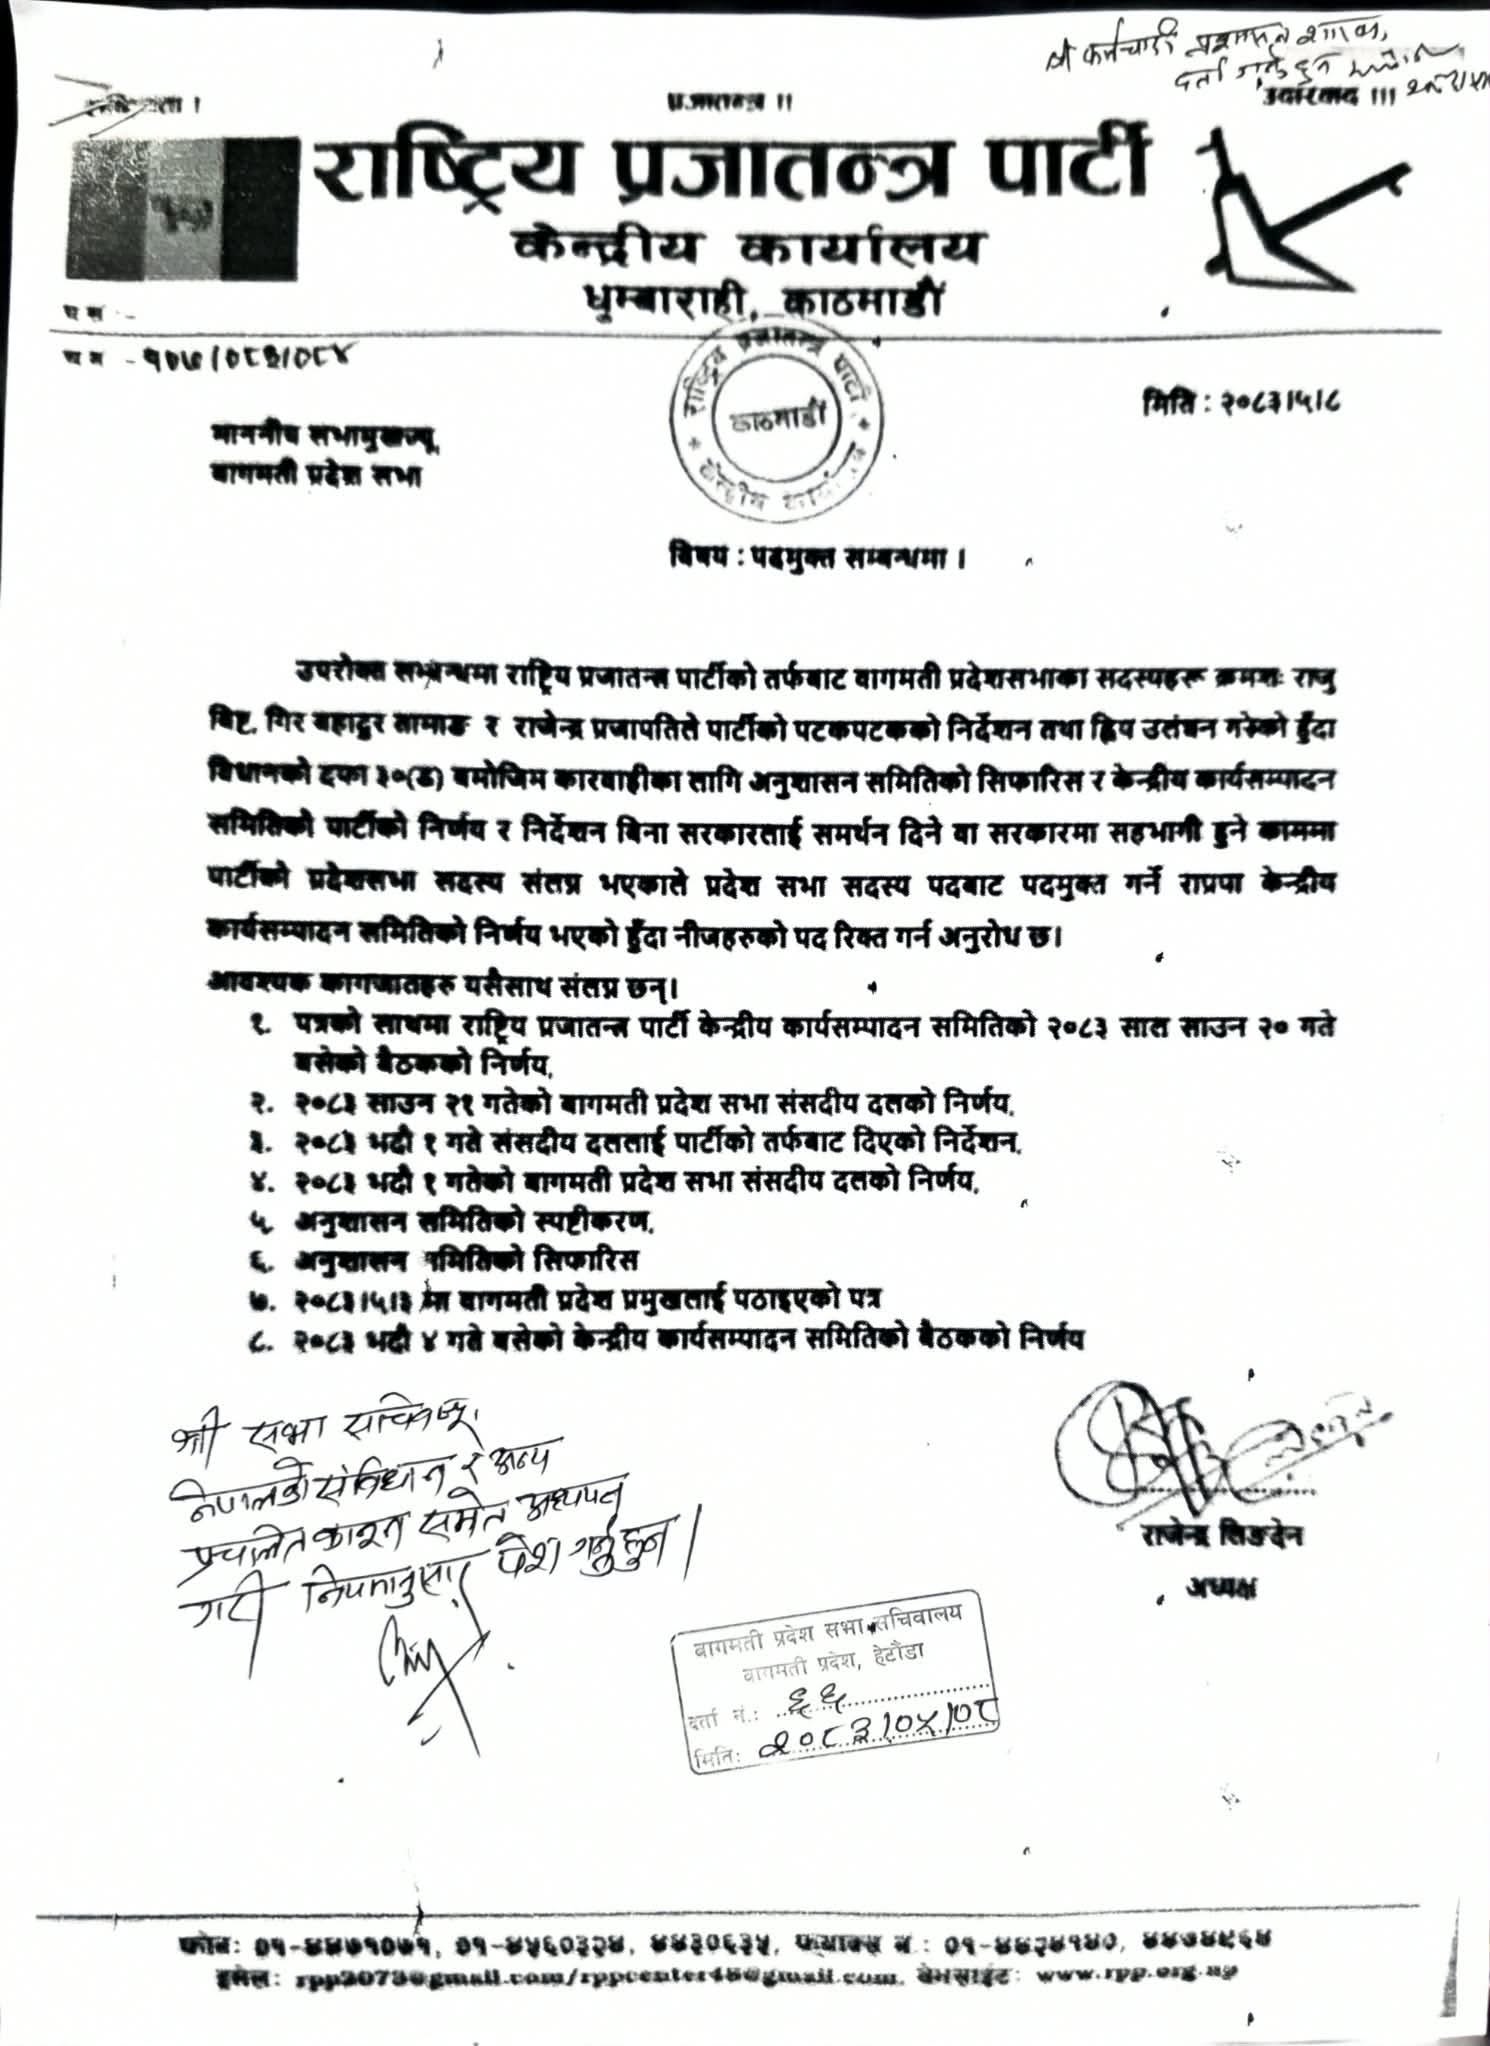 श्री कर्मचारी प्रशासन शाखा,
दर्ता गर्नु हुन
प्रजातन्त्र ।।
उदारवाद ।।।
राष्ट्रिय प्रजातन्त्र पार्टी
केन्द्रीय कार्यालय
धुम्बाराही, काठमाडौं
प सं :-
च नं - १०७/०८३/०८४
राष्ट्रिय प्रजातन्त्र पार्टी
काठमाडौं
केन्द्रीय कार्यालय
मिति : २०८३।५।८
माननीय सभामुखज्यू,
बागमती प्रदेश सभा
विषय : पदमुक्त सम्बन्धमा ।
उपरोक्त सम्बन्धमा राष्ट्रिय प्रजातन्त्र पार्टीको तर्फबाट बागमती प्रदेशसभाका सदस्यहरू क्रमशः राजु
विष्ट, गिर बहादुर तामाङ र राजेन्द्र प्रजापतिले पार्टीको पटकपटकको निर्देशन तथा ह्विप उलंघन गरेको हुँदा
विधानको दफा ३०(ड) बमोजिम कारबाहीका लागि अनुशासन समितिको सिफारिस र केन्द्रीय कार्यसम्पादन
समितिको पार्टीको निर्णय र निर्देशन बिना सरकारलाई समर्थन दिने वा सरकारमा सहभागी हुने काममा
पार्टीको प्रदेशसभा सदस्य संलग्न भएकाले प्रदेश सभा सदस्य पदबाट पदमुक्त गर्ने राप्रपा केन्द्रीय
कार्यसम्पादन समितिको निर्णय भएको हुँदा नीजहरुको पद रिक्त गर्न अनुरोध छ।
आवश्यक कागजातहरु यसैसाथ संलग्न छन्।
१. पत्रको साथमा राष्ट्रिय प्रजातन्त्र पार्टी केन्द्रीय कार्यसम्पादन समितिको २०८३ साल साउन २० गते
बसेको बैठकको निर्णय,
२. २०८३ साउन २१ गतेको बागमती प्रदेश सभा संसदीय दलको निर्णय,
३. २०८३ भदौ १ गते संसदीय दललाई पार्टीको तर्फबाट दिएको निर्देशन,
४. २०८३ भदौ १ गतेको बागमती प्रदेश सभा संसदीय दलको निर्णय,
५. अनुशासन समितिको स्पष्टीकरण,
६. अनुशासन समितिको सिफारिस
७. २०८३।५।३ मा बागमती प्रदेश प्रमुखलाई पठाइएको पत्र
८. २०८३ भदौ ४ गते बसेको केन्द्रीय कार्यसम्पादन समितिको बैठकको निर्णय
श्री सभा सचिवज्यू,
नेपालको संविधान र अन्य
प्रचलित कानून समेत अध्ययन
गरी नियमानुसार पेश गर्नुहुन ।
राजेन्द्र लिङदेन
अध्यक्ष
बागमती प्रदेश सभा सचिवालय
बागमती प्रदेश, हेटौंडा
दर्ता नं.: ६६
मिति: २०८३/०५/०८
फोन: ०१-४४७१०७१, ०१-४५६०३२४, ४४३०६३५, फ्याक्स नं : ०१-४४२४१४०, ४४७४९६४
इमेल: rpp2073@gmail.com/rppcenter46@gmail.com, वेभसाइट: www.rpp.org.np